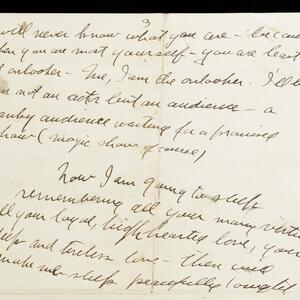 3
will never know what you are - because
when you are most yourself - you are least
onlooker - Me, I am the onlooker. I'll
not an actor but an audience - a
audience waiting for a promised
show (magic show of course)
Now I am going to sleep
remembering all your many virtues
all your loyal, highhearted love, your
deep and tireless love - then
make me sleep peacefully tonight